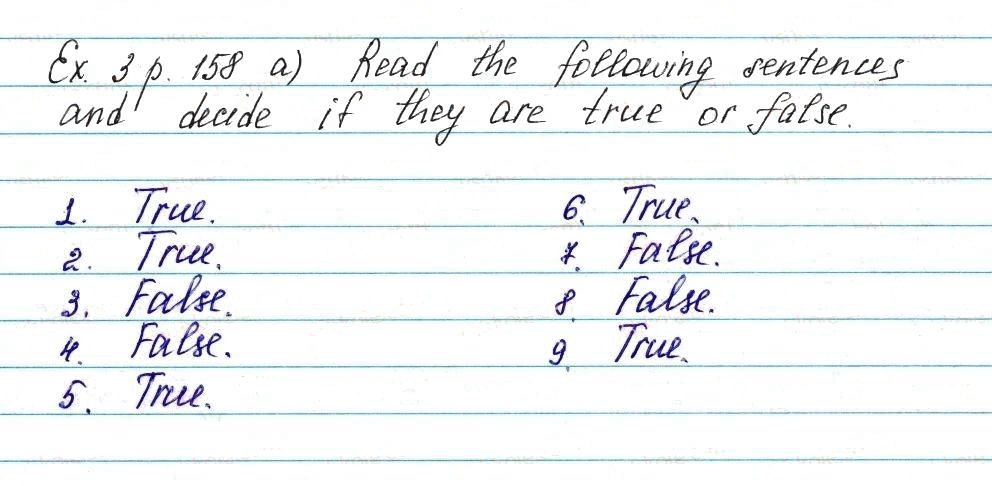 Ex. 3 p. 158 a) Read the following sentences
and decide if they are true or false.
1. True.
2. True.
3. False.
4. False.
5. True.
6. True.
7. False.
8. False.
9. True.